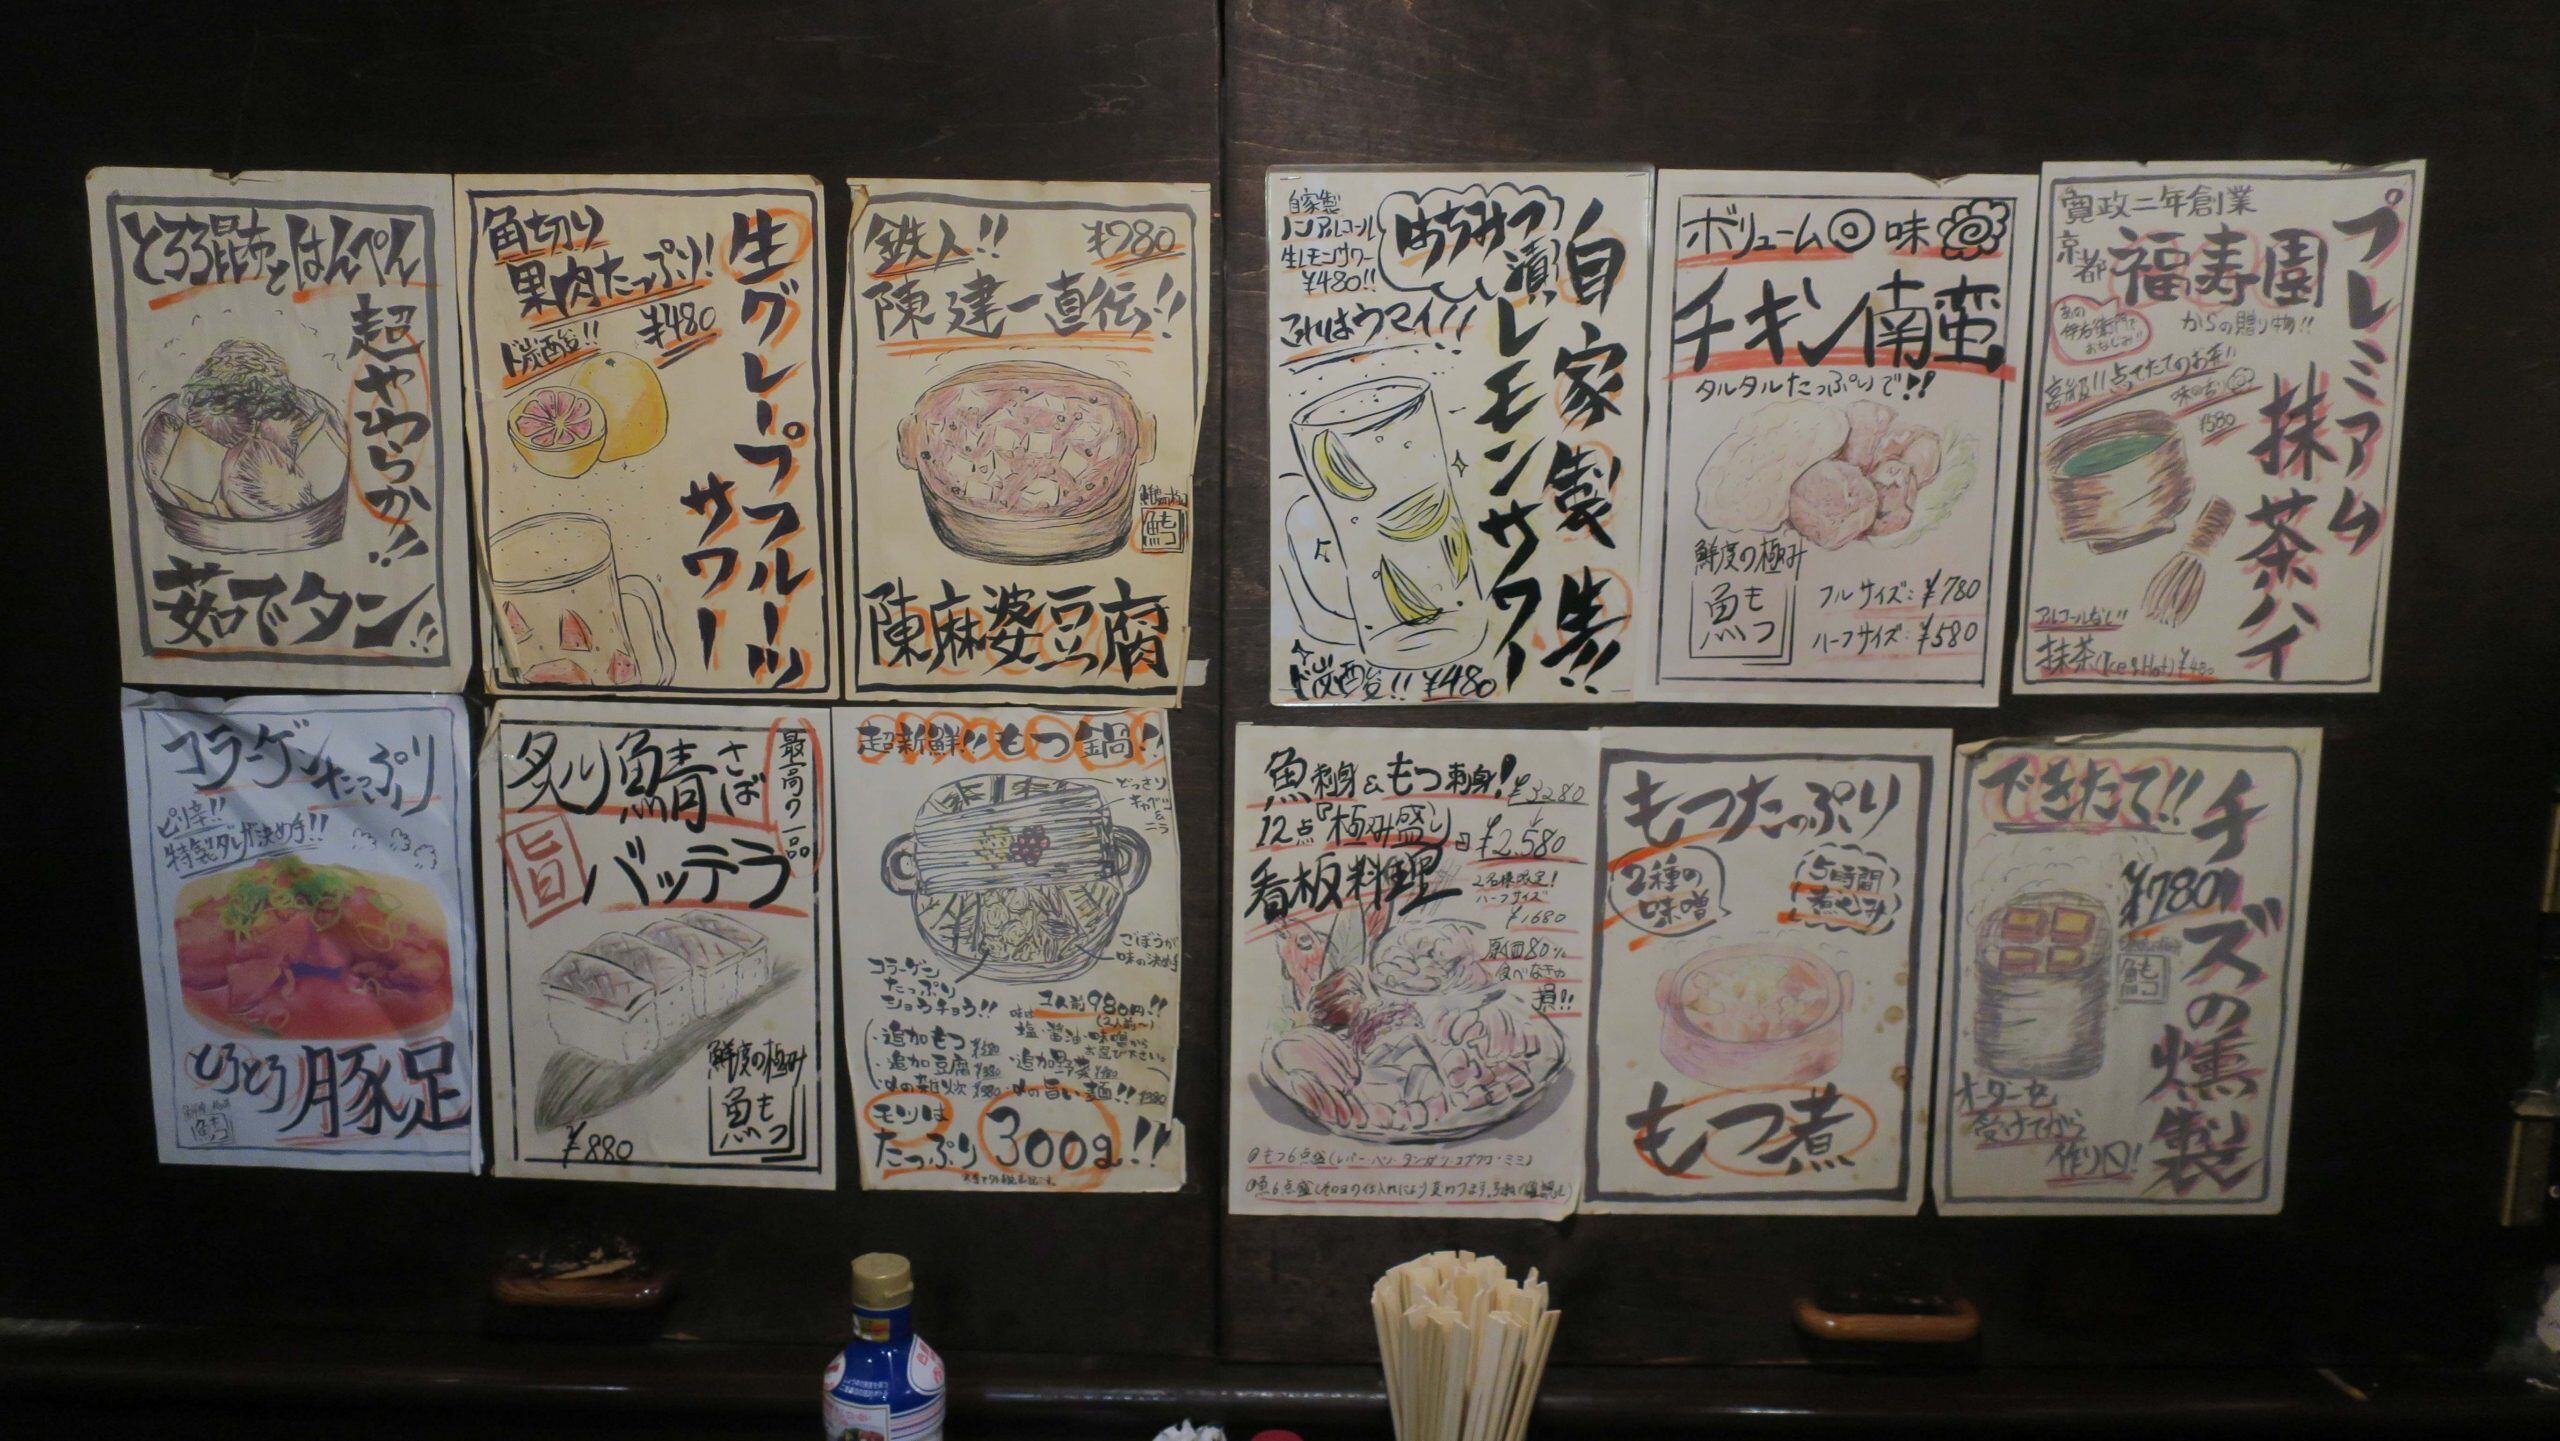 とろろ昆布とはんぺん
超やわらか!!
茹でタン!!
生グレープフルーツ
サワー
角切り
果肉たっぷり!
¥480
ド炭酸!!
鉄人!!
¥780
陳建一直伝!!
鮮度の極み
陳麻婆豆腐
自家製
ノンアルコール
生レモンサワー
¥480!!
はちみつ
漬レモンサワー
自家製生!!
これはウマイ!!
ド炭酸!! ¥480
ボリューム◎味
チキン南蛮
タルタルたっぷりで!!
鮮度の極み
魚もつ
フルサイズ:¥780
ハーフサイズ:¥580
プレミアム
抹茶ハイ
寛政二年創業
京都福寿園
からの贈り物!!
あの
伊右衛門で
おなじみ!!
高級!!点てたてのお茶!!
¥580
アルコールなし!!
抹茶(Ice&Hot)¥480
コラーゲン
たっぷり
ピリ辛!!
特製ダレが決め手!!
とろとろ豚足
最高の一品
炙り鯖さば
旨
バッテラ
鮮度の極み
魚もつ
¥880
超新鮮!!もつ鍋!!
どっさり
キャベツ&
ニラ
ごぼうが
味の決め手
コラーゲン
たっぷり
ショウチョウ!!
1人前980円!!
(2人前〜)
味は
塩・醤油・味噌から
お選び下さい。
・追加もつ
・追加豆腐
・追加野菜
・〆の雑炊
・〆の旨い麺!!
モツは
たっぷり300g!!
魚刺身&もつ刺身!
¥3280
12点『極み盛り』
¥2.580
看板料理
2名様限定!
ハーフサイズ
¥1680
原価80%
食べなきゃ
損!!
もつたっぷり
2種の
味噌
5時間
煮込み
もつ煮
できたて!!
チーズの燻製
¥780
オーダーを
受けてから
作り〼!